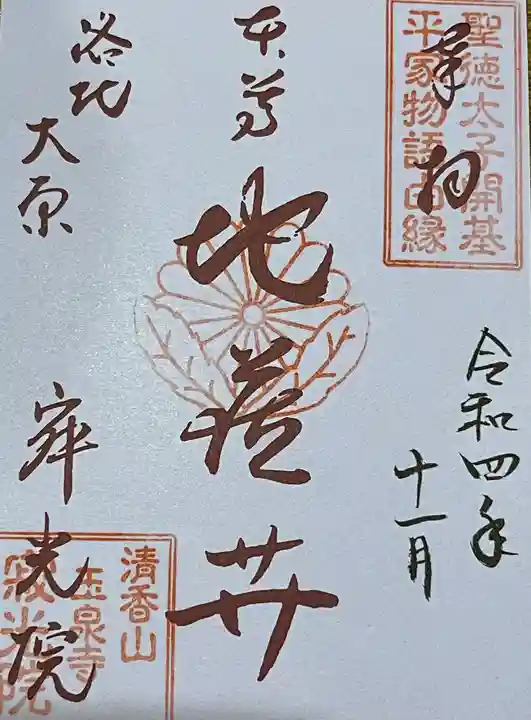 奉拝
聖徳太子開基
平家物語由縁
令和四年
十一月
本尊
地蔵廾
洛北
大原
寂光院
清香山
玉泉寺
寂光院